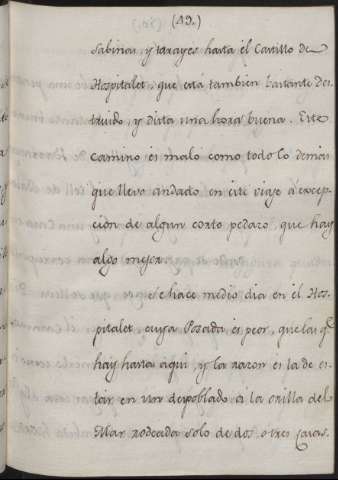 (49.)
Sabinas, y tarayes hasta el Castillo de
Hospitalet, que está tambien bastante des-
truido, y dista una hora buena. Este
camino es malo como todo lo demas
que llevo andado en este viaje á excep-
ción de algun corto pedazo, que hay
algo mejor.
Se hace medio dia en el Hos-
pitalet, cuya Posada es peor, que las q.^e
hay hasta aqui, y la razon es la de es-
tar en un despoblado a la orilla del
Mar rodeada solo de dos, o tres Casas.